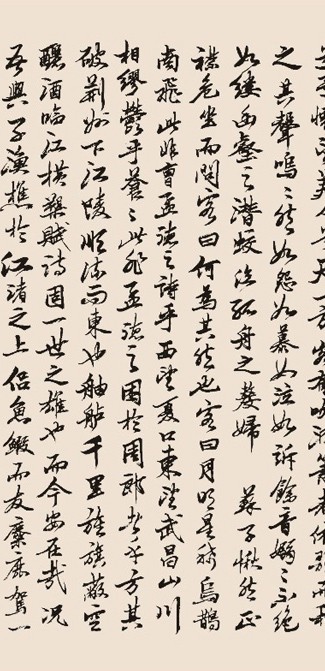 之其聲嗚々然如怨如慕如泣如訴餘音嫋々不絕
如縷幽壑之潛蛟泣孤舟之嫠婦 蘇子愀然正
襟危坐而問客曰何為其然也客曰月明星稀烏鵲
南飛此非曹孟德之詩乎西望夏口東望武昌山川
相繆鬱乎蒼々此非孟德之困於周郎者乎方其
破荊州下江陵順流而東也舳艫千里旌旗蔽空
釃酒臨江橫槊賦詩固一世之雄也而今安在哉況
吾與子漁樵於江渚之上侶魚鰕而友麋鹿駕一